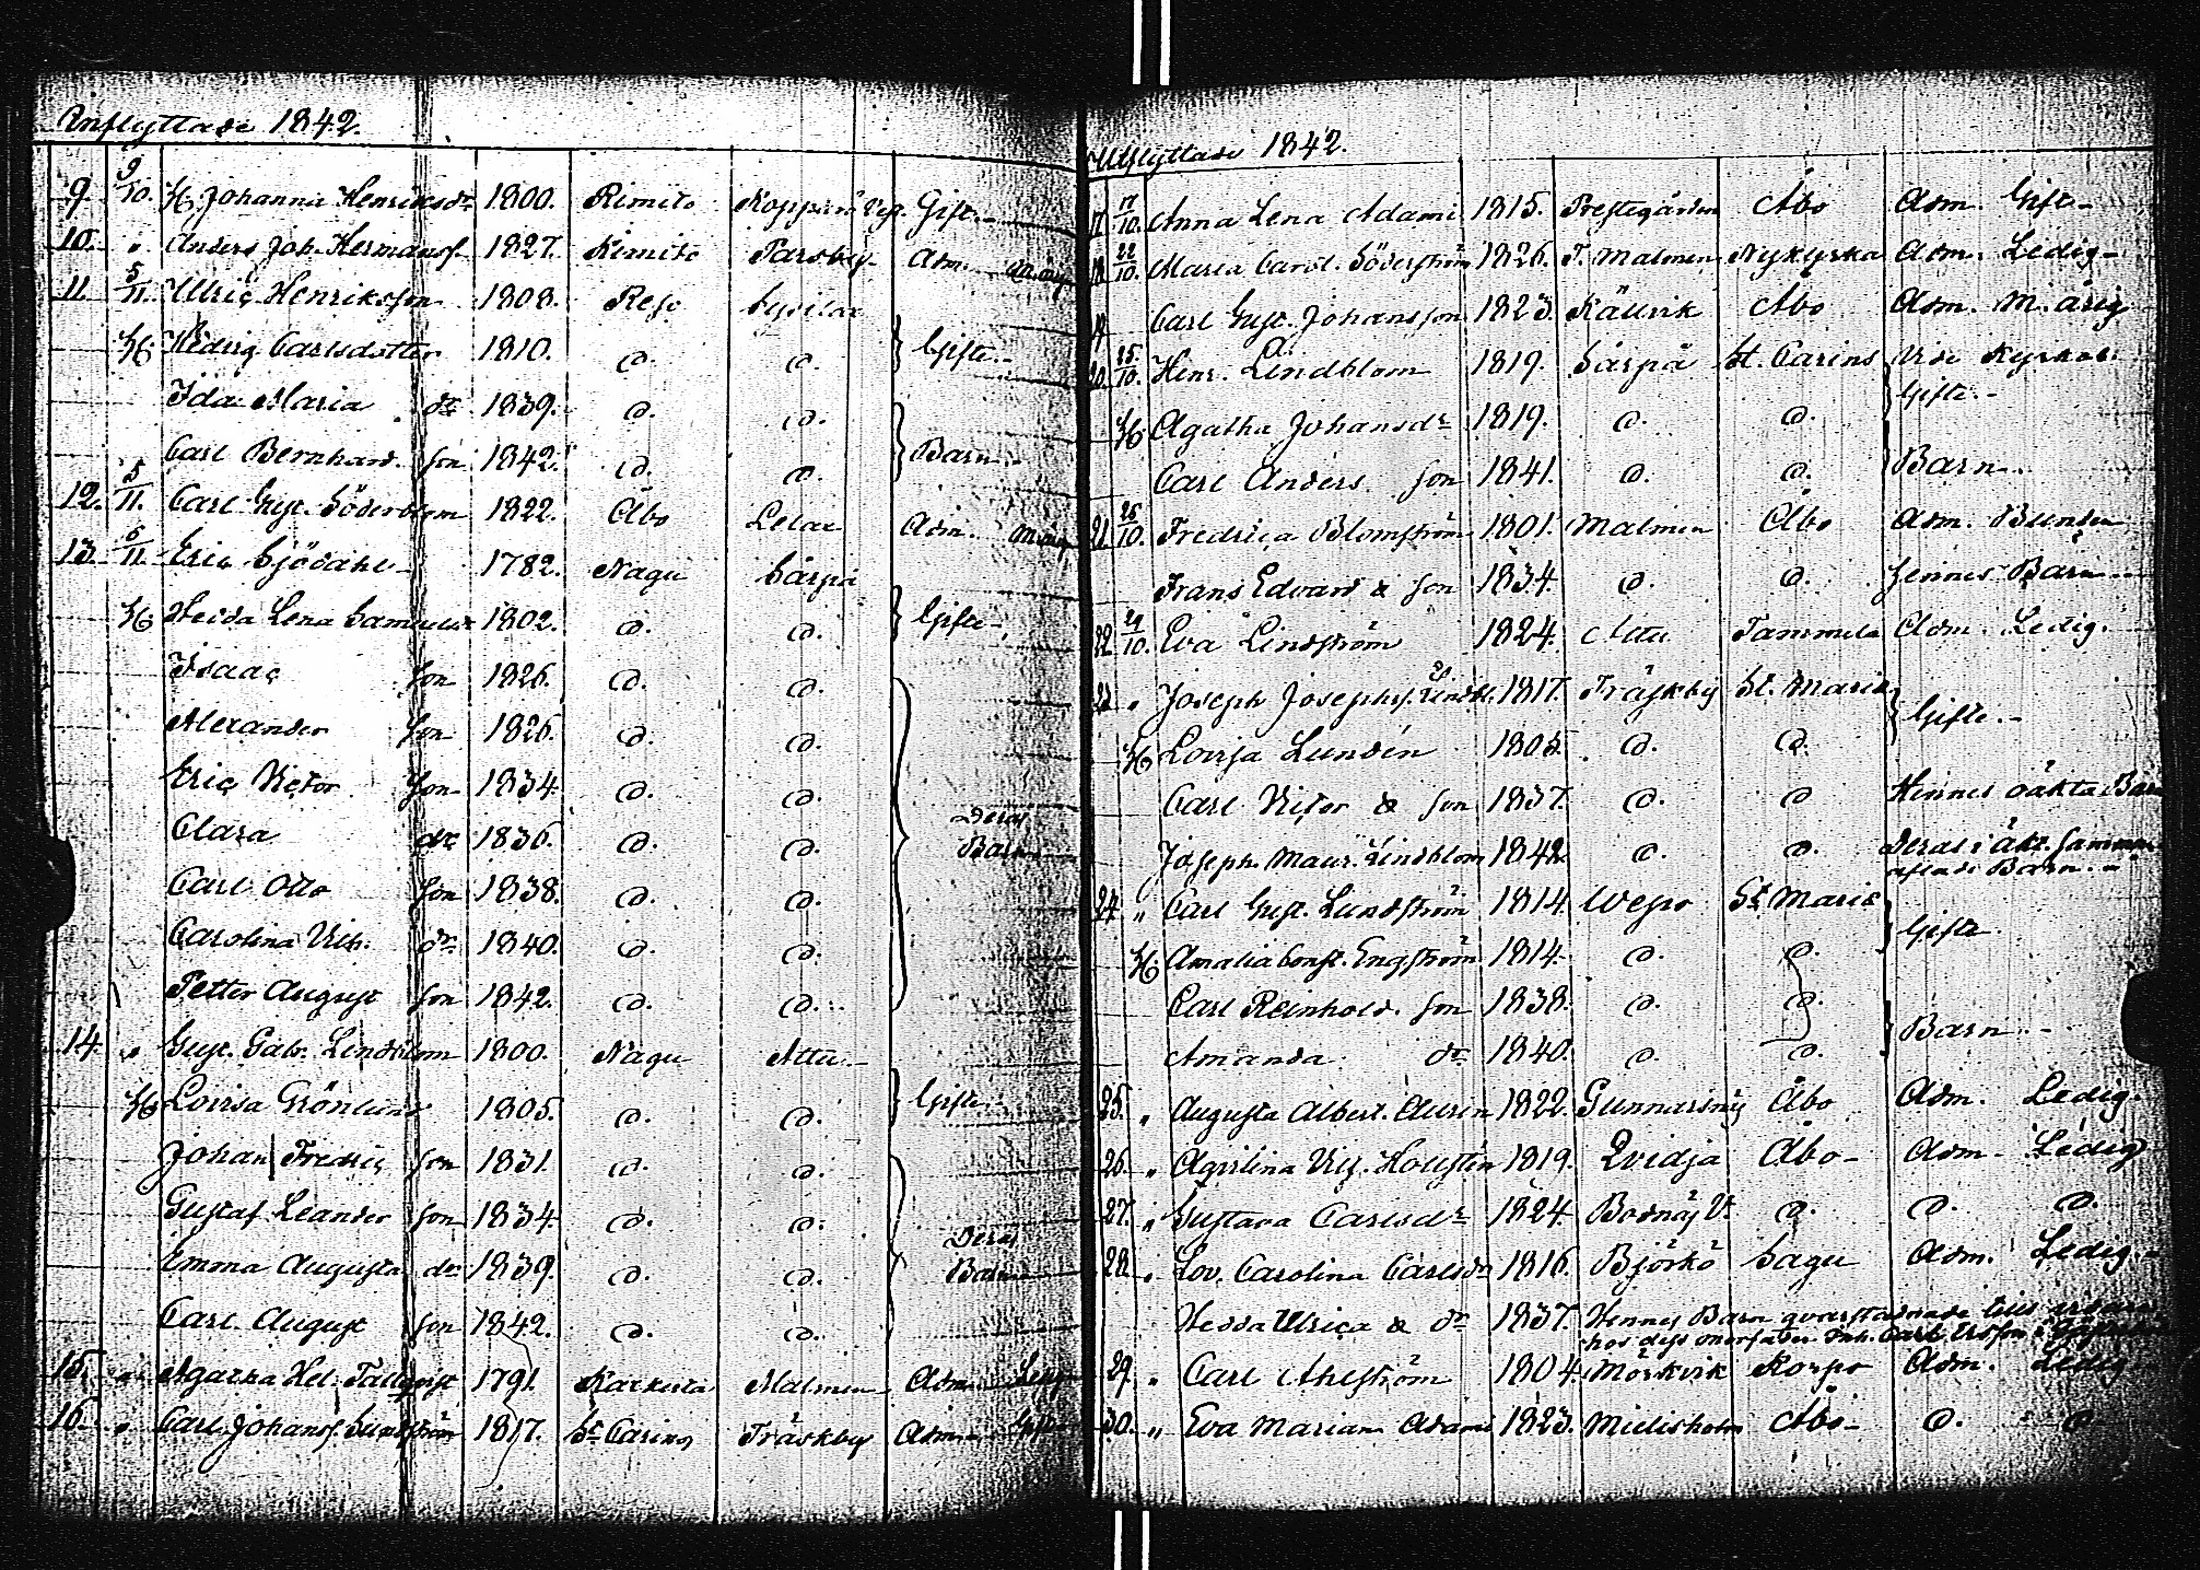 Inflyttade 1842.
9. 9/10. H. Johanna Henriksdr 1800. Kimito Koppar Gift.
10. " Anders Joh. Hermansf. 1827. Kimito Parsby Adm.
11. 5/11. Ulric Henriksson 1808. Reso
H. Hedvig Carlsdotter 1810. d. d. Gifte.
Ida Maria dr 1839. d. d.
Carl Bernhard son 1842. d. d. Barn.
12. 5/11. Carl Gust. Söderblom 1822. Åbo Lelax Adm.
13. 6/11. Eric Sjödahl 1782. Nagu Särpä
H. Heida Lena 1802. d. d. Gifte.
Isaac son 1826. d. d.
Alexander son 1826. d. d.
Eric Victor son 1834. d. d.
Clara dr 1836. d. d. Deras Barn
Carl Otto son 1838. d. d.
Carolina Vilh. dr 1840. d. d.
Petter August son 1842. d. d.
14. " Gust. Gabr. Lindblom 1800. Nagu Attu
H. Lovisa Grönlund 1805. d. d. Gifte.
Johan Fredric son 1831. d. d.
Gustaf Leander son 1834. d. d. Deras
Emma Augusta dr 1839. d. d. Barn
Carl August son 1842. d. d.
15. Agatha Hel. Tallqvist 1791. Malmen Adm.
16. " Carl Johansf. 1817. St Carins Träskby Adm.
Utflyttade 1842.
17 17/10. Anna Lena Adami 1815. Prestegården Åbo Adm. Gift
18 22/10. Maria Carol. Söderström 1826. T. Malmen Nykyrka Adm. Ledig
19 Carl Gust. Johansson 1823. Källvik Åbo Adm. M. årig
20. 25/10. Henr. Lindblom 1819. Särpä St. Carins Vide
H Agatha Johansdr 1819. d. d. Gifte.
Carl Anders son 1841. d. d. Barn.
21 25/10. Fredrica Blomström 1801. Malmen Åbo Adm.
Frans Edvard son 1834. d. d. Hennes Barn
22 29/10. Eva Lindström 1824. Attu Tammela Adm. Ledig.
23 " Joseph Josephs. 1817. Träskby St. Marie
H Lovisa Lundén 1805. d. d. Gifte.
Carl Victor son 1837. d. d Hennes oäkta Barn
Joseph Maur. Lindblom 1842. d. d. Deras i äkt. samman
aflade Barn.
24. " Carl Gust. Lundström 1814. St. Marie
H. Amalia Const. Engström 1814. d. d. Gifte
Carl Reinhold. son 1838. d. d.
Amanda dr 1840. d. d. Barn.
25. " Augusta Albert. 1822. Gunnarsnäs Åbo Adm. Ledig.
26. " Agrilina 1819. Qvidja Åbo Adm. Ledig
27. " Gustava Carlsdr 1824. Bodnäs V. d. d. d.
28. " Lov. Carolina Carlsdr 1816. Björkö Sagu Adm. Ledig.
Hedda Ulrica dr 1837. Hennes Barn qvarstadnade
hos dess morfader Inh. Carl
29. " Carl Ahlström 1804. Mörkvik Korpo Adm. Ledig
30. " Eva Mariam Adami 1823. Mielisholm Åbo d. d